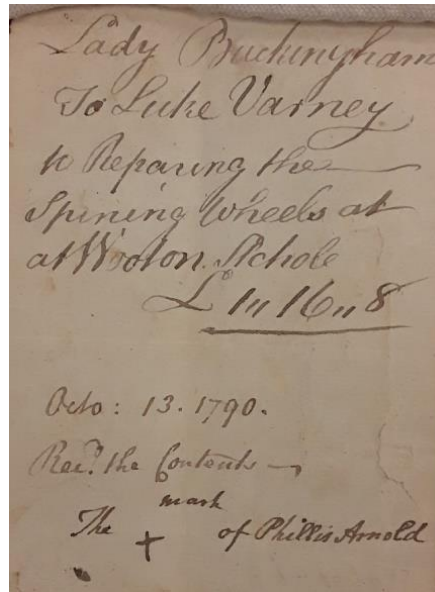 Lady Buckingham
To Luke Varney
to Reparing the
Spining Wheels at
at Wooton Schole
£ 1 " 16 " 8
Octo: 13. 1790.
Rec.d the Contents
mark
The + of Phillis Arnold